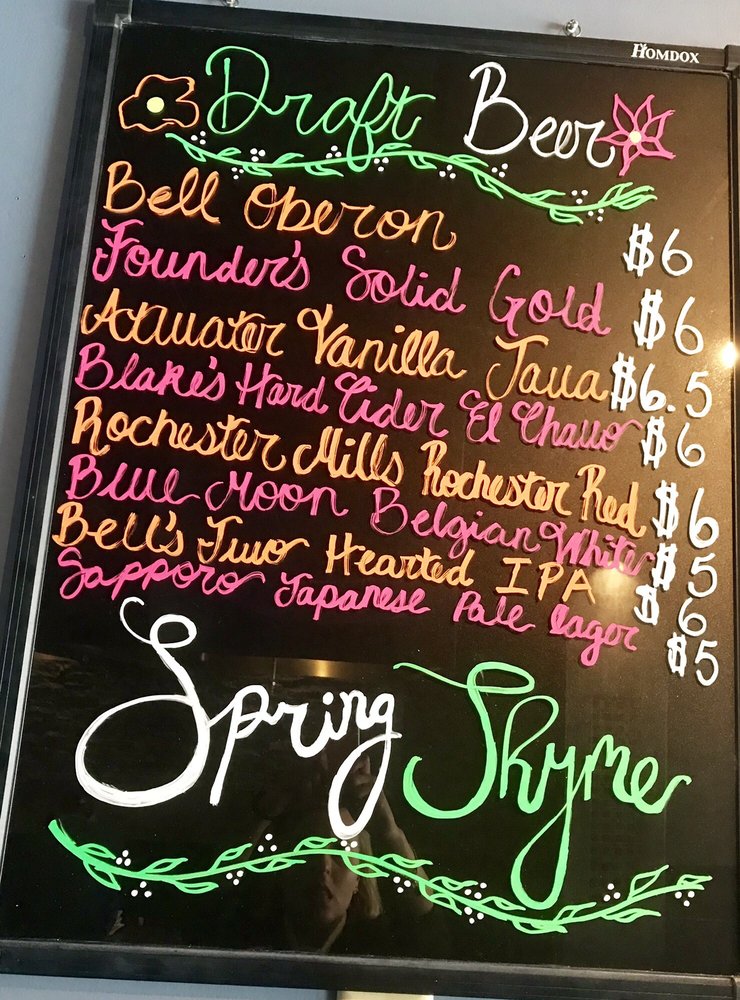 HOMDOX
Draft Beer
Bell Oberon $6
Founder's Solid Gold $6
Atwater Vanilla Java $6.5
Blake's Hard Cider El Chavo $6
Rochester Mills Rochester Red $6
Blue Moon Belgian White $5
Bell's Two Hearted IPA $6
Sapporo Japanese Pale Lager $5
Spring Thyme